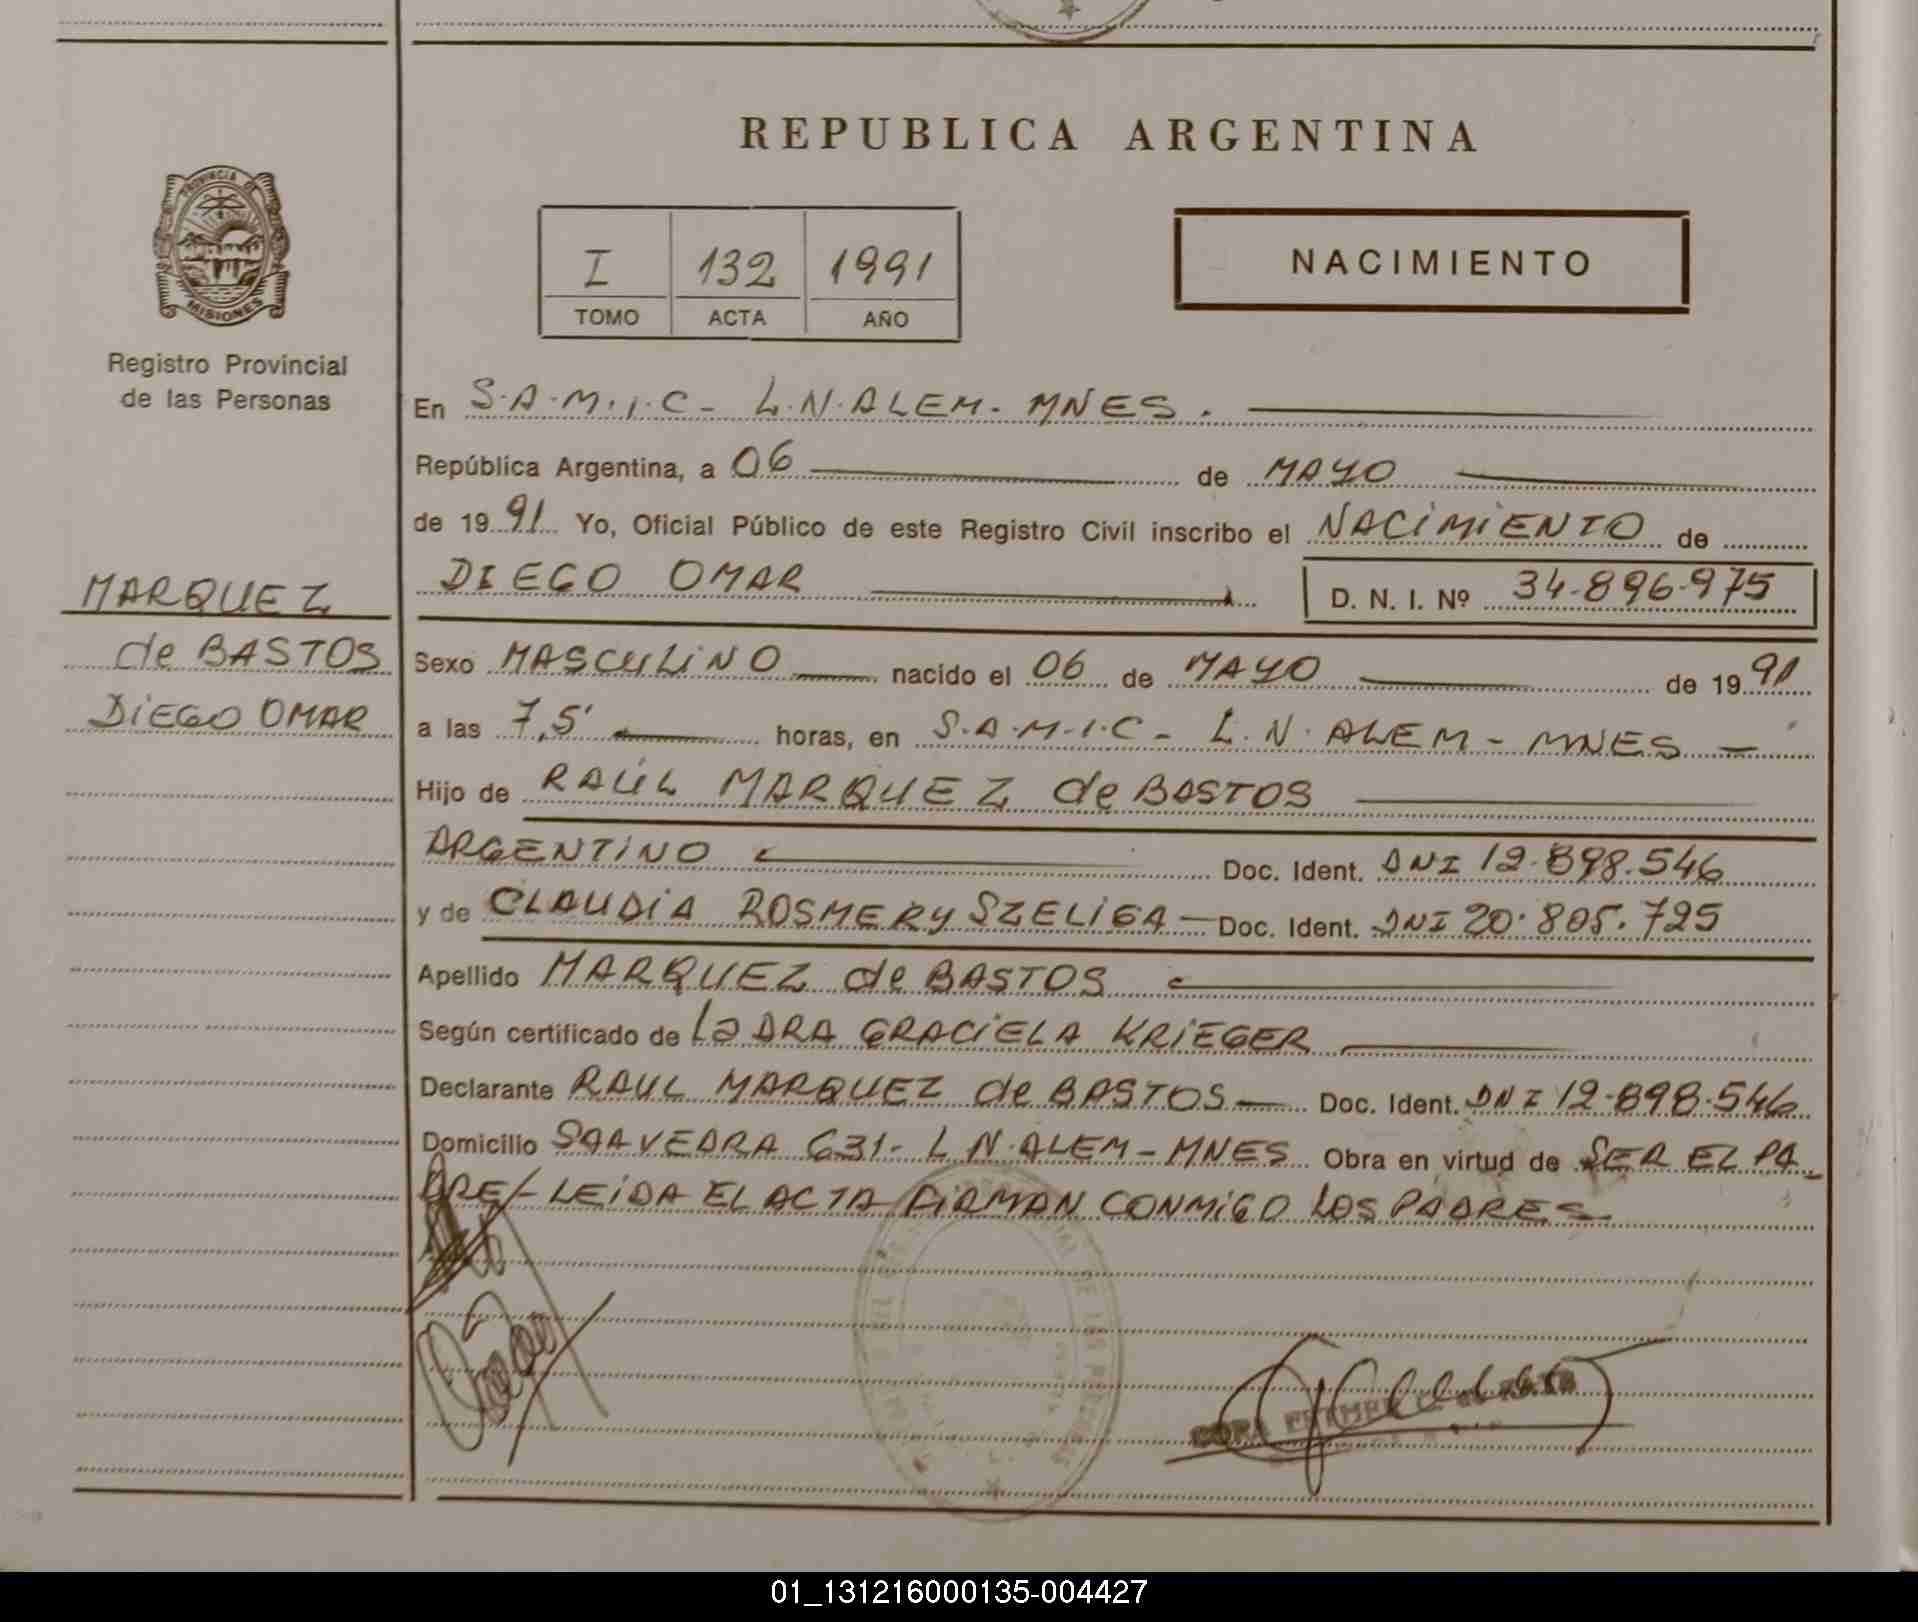 REPUBLICA ARGENTINA
PROVINCIA DE
MISIONES
Registro Provincial
de las Personas
I 132 1991
TOMO ACTA AÑO
NACIMIENTO
En S.A.M.I.C - L.N.ALEM - MNES.
República Argentina, a 06 de MAYO
de 1991 Yo, Oficial Público de este Registro Civil inscribo el NACIMIENTO de
DIEGO OMAR D. N. I. Nº 34.896.975
MARQUEZ
de BASTOS
DIEGO OMAR
Sexo MASCULINO nacido el 06 de MAYO de 1991
a las 7,5' horas, en S.A.M.I.C - L.N.ALEM - MNES -
Hijo de RAÚL MARQUEZ de BASTOS
ARGENTINO Doc. Ident. DNI 12.898.546
y de CLAUDIA ROSMERY SZELIGA - Doc. Ident. DNI 20.805.725
Apellido MARQUEZ de BASTOS
Según certificado de La DRA GRACIELA KRIEGER
Declarante RAUL MARQUEZ de BASTOS - Doc. Ident. DNI 12.898.546
Domicilio SAAVEDRA 631- L N.ALEM - MNES Obra en virtud de SER EL PA-
DRE/- LEIDA EL ACTA FIRMAN CONMIGO LOS PADRES
01_131216000135-004427